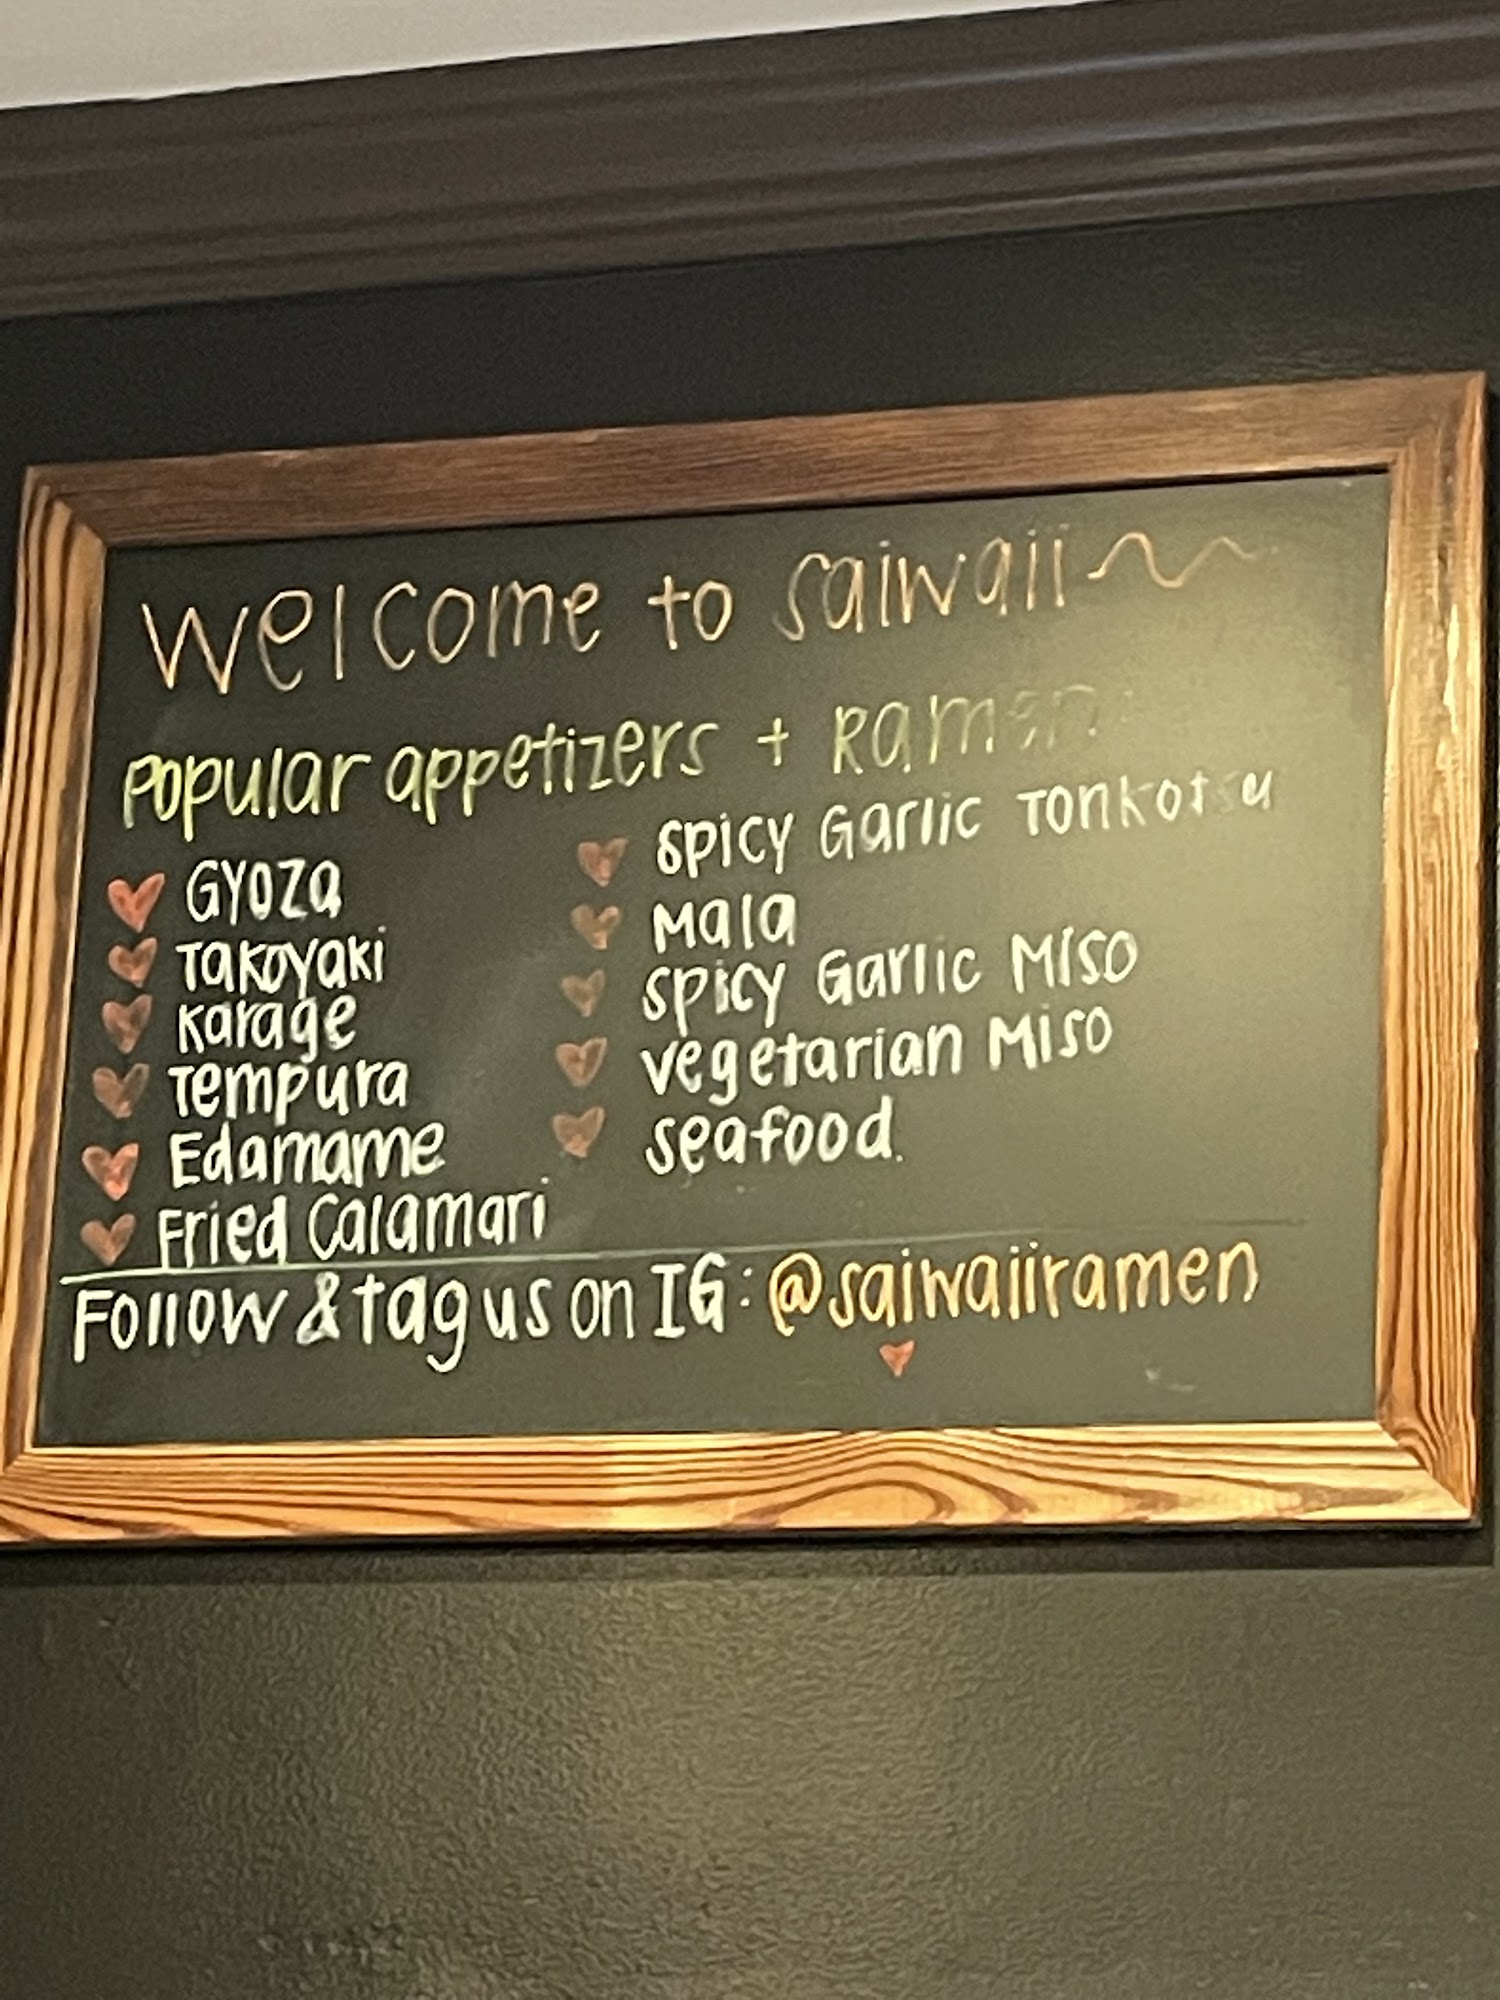 Welcome to saiwaii
Popular appetizers + Ramen
Gyoza
Takoyaki
Karage
Tempura
Edamame
Fried Calamari
Spicy Garlic Tonkotsu
Mala
Spicy Garlic Miso
Vegetarian Miso
Seafood.
Follow & tag us on IG: @saiwaiiramen